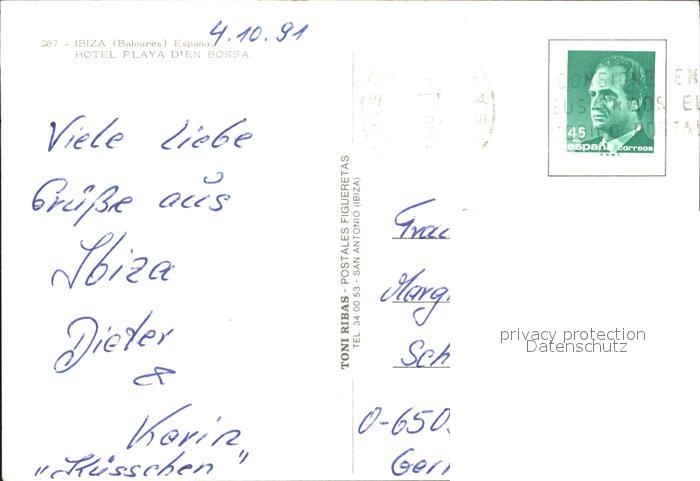 4.10.91
297 - IBIZA (Baleares) España
HOTEL PLAYA D'EN BOSSA.
Viele liebe
Grüße aus
Ibiza
Dieter
&
Karin
"Küsschen"
TONI RIBAS - POSTALES FIGUERETAS
TEL. 34 00 53 - SAN ANTONIO (IBIZA)
CONSIGNE EN
SUS ENVIOS EL
CODIGO POSTAL
45
españa correos
F.N.M.T.
Frau
Marg
Sch
O-650
Ger
privacy protection
Datenschutz